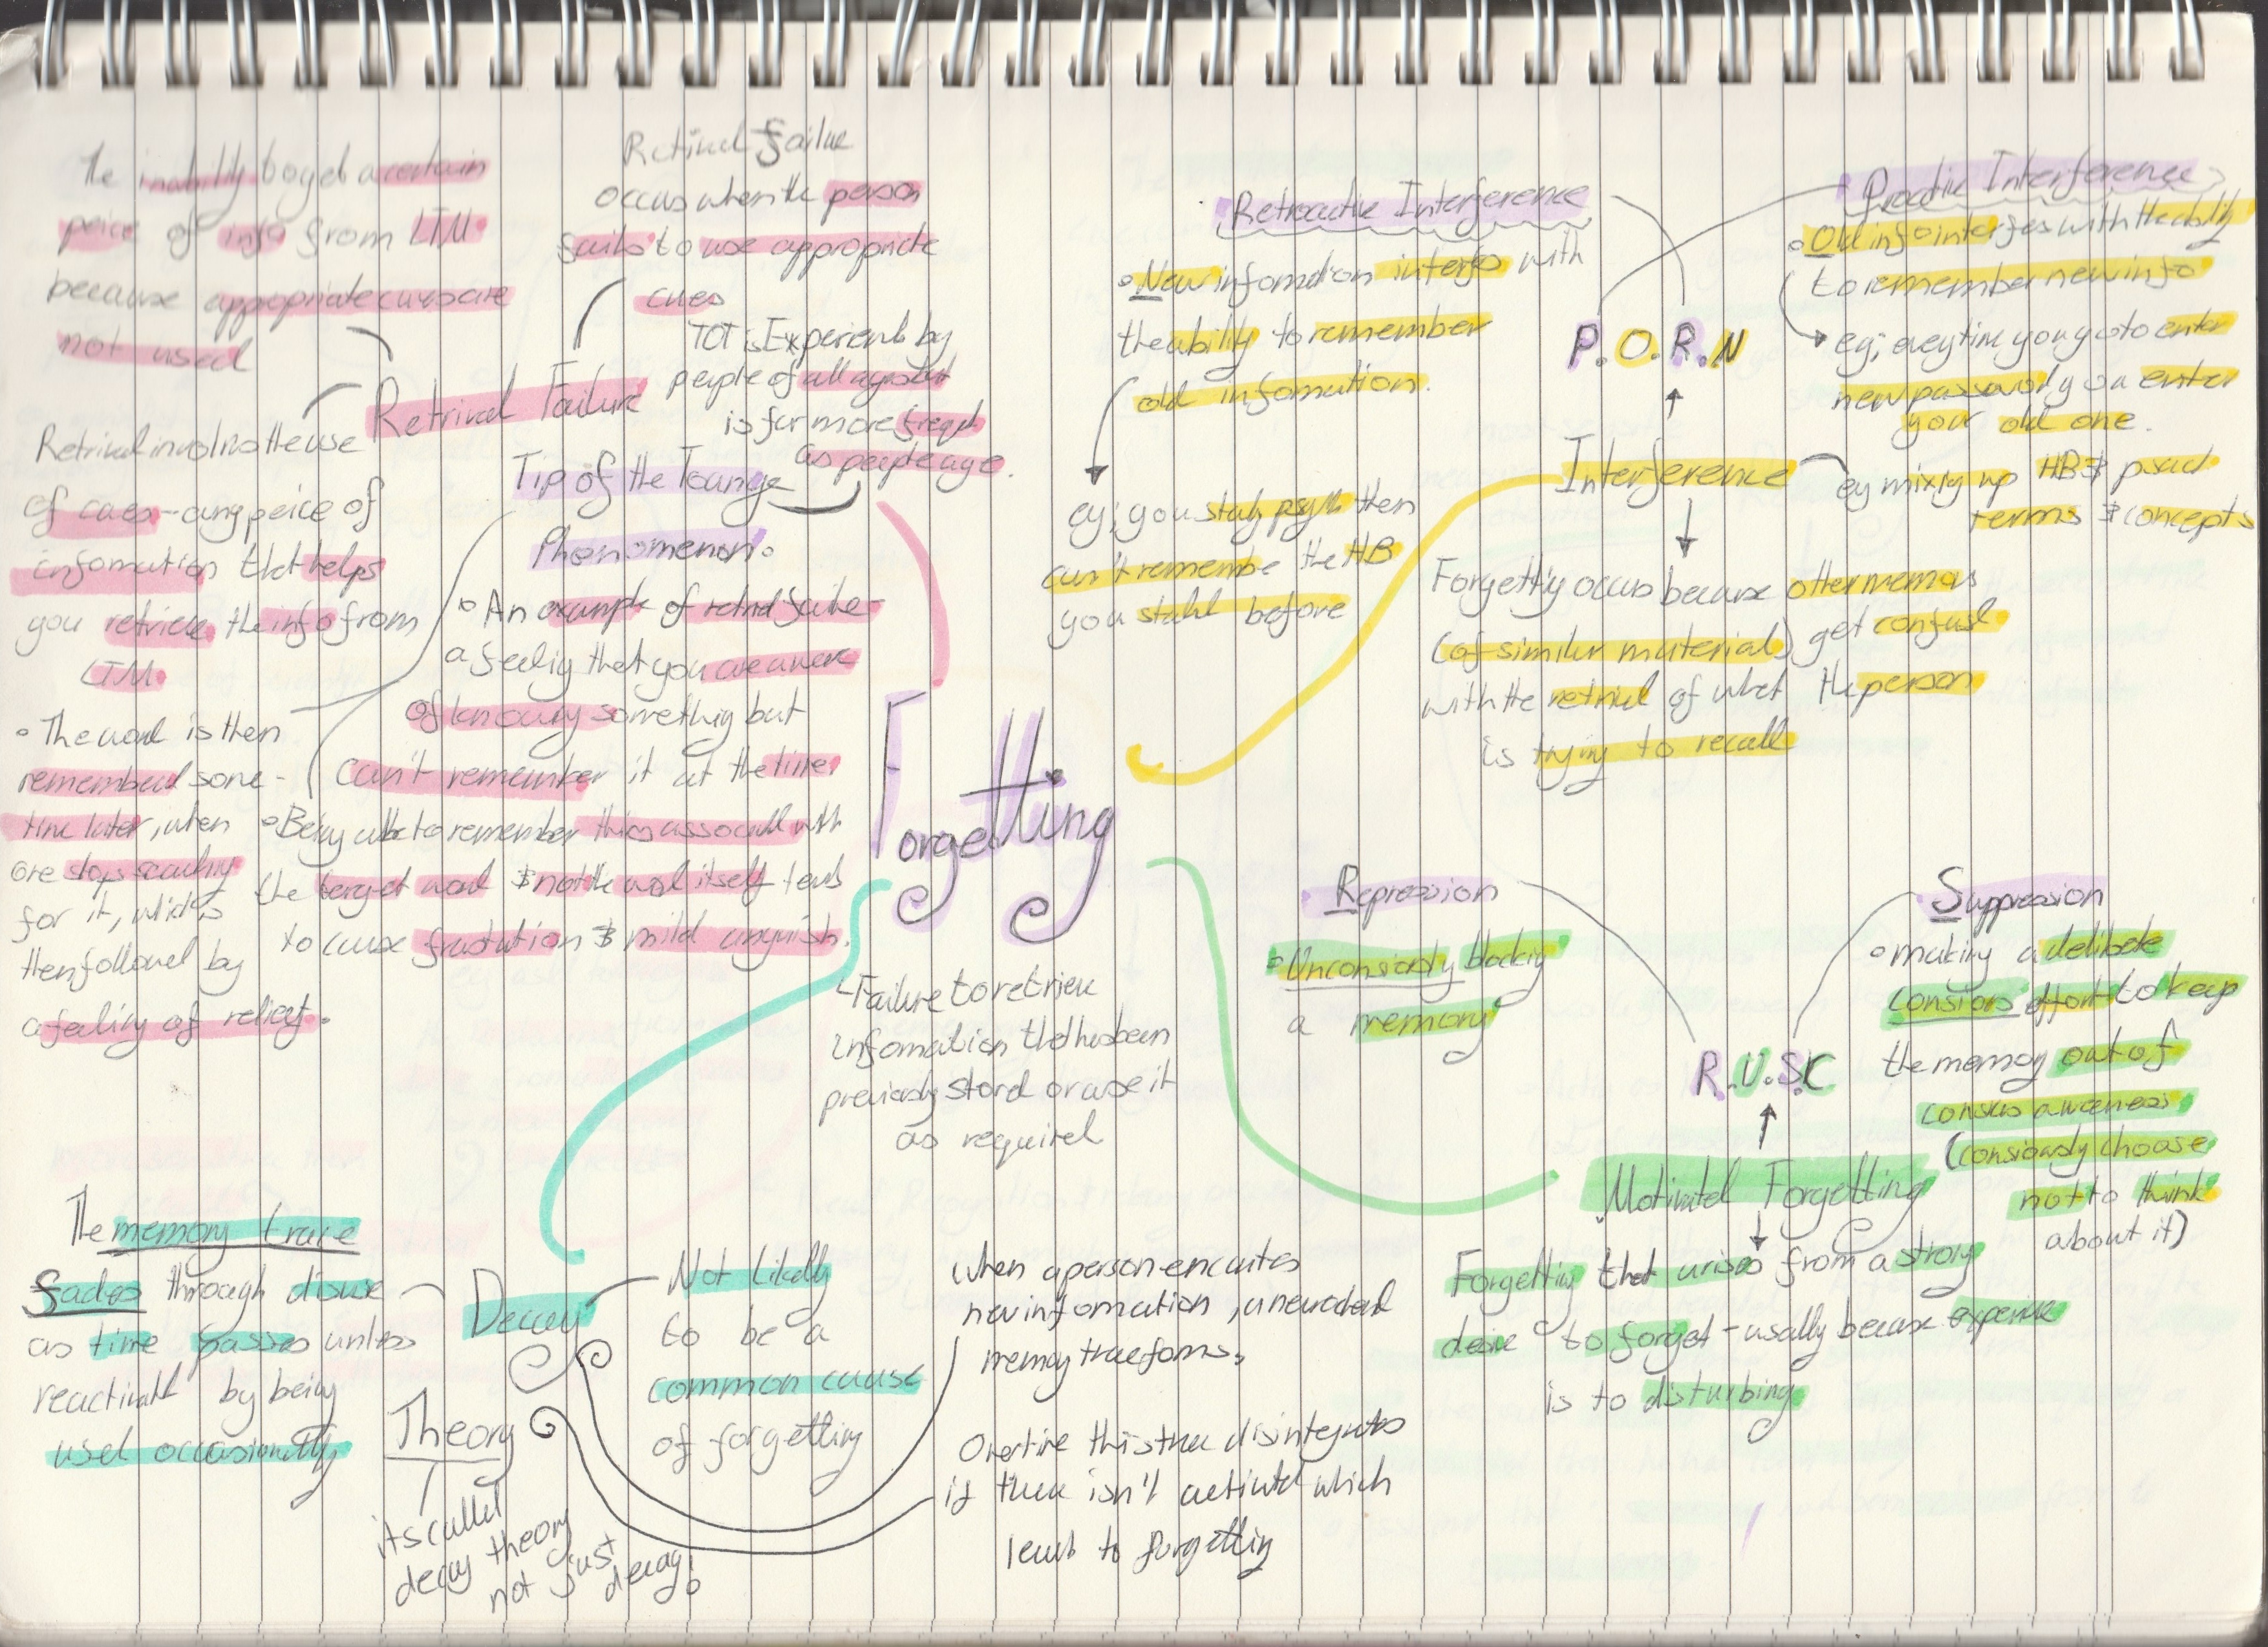 The inability to get a certain
peice of info from LTM
because appropriate cues are
not used
Retrival failue
occus when the person
fails to use appropriate
cues
Retrival Failure
Retrival involves the use
of cues - any peice of
infomation that helps
you retrieve the info from
LTM.
TOT is Experienced by
people of all ages but
is far more freqent
as people age.
Tip of the Tounge
Phenomenon.
An example of retrival failure -
a feeling that you are aware
of knowing something but
can't remember it at the time
Being able to remember things associated with
the target word & not the word itself tends
to cause frustration & mild anguish.
The word is then
remembered some-
time later, when
one stops searching
for it, which is
then followed by
a feeling of relief.
Forgetting
Failure to retrieve
infomation that has been
previously stored or use it
as required
Retroactive Interference
New infomation interfers with
the ability to remember
old infomation.
eg; you study psych then
can't remember the HB
you studied before
Proactive Interference
Old info interfers with the ability
to remember new info
eg; everytime you go to enter
new password you enter
your old one.
P.O.R.N
Interference
eg mixing up HB & psych
terms & concepts
Forgetting occurs because other memories
(of similar material) get confused
with the retrival of what the person
is trying to recall
Repression
Unconsiously blocking
a memory
Suppression
making a deliberate
consious effort to keep
the memory out of
consious awareness
(consiously choose
not to think
about it)
R.U.S.C
Motivated Forgetting
Forgetting that arises from a strong
desire to forget - usally because experience
is to disturbing
The memory trace
fades through disuse
as time passes unless
reactivated by being
used occasionally
Decay
Theory
its called
decay theory
not just
decay!
Not likely
to be a
common cause
of forgetting
When a person encodes
new infomation, a neurochemical
memory trace forms.
Overtime this trace disintegrates
if there isn't activated which
leads to forgetting